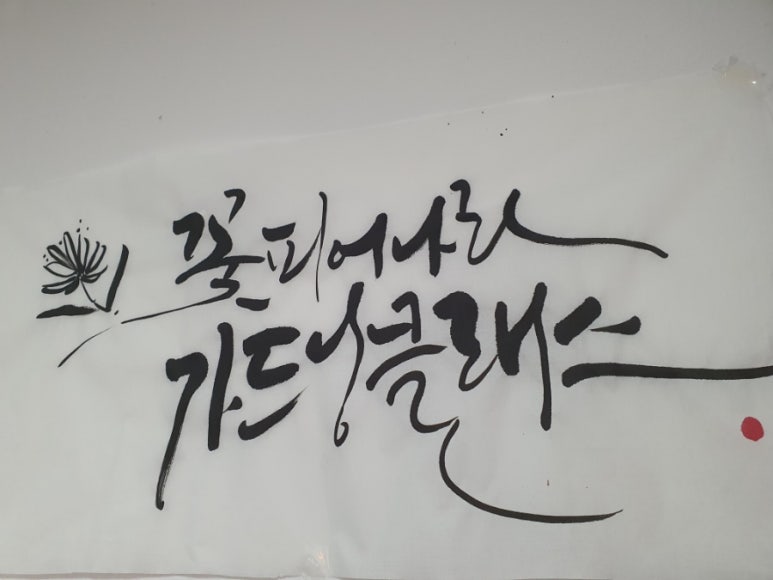 꽃피어나라
가드닝클래스